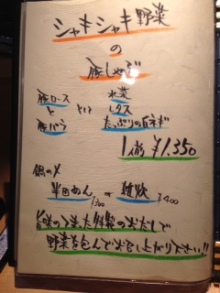 シャキシャキ野菜
の
豚しゃぶ
豚ロース 水菜
と とい レタス
豚バラ たっぷり白ネギ
1人前 ¥1,350
鍋の〆
半田めん or 雑炊
野菜を包んでお召し上がり下さい!!